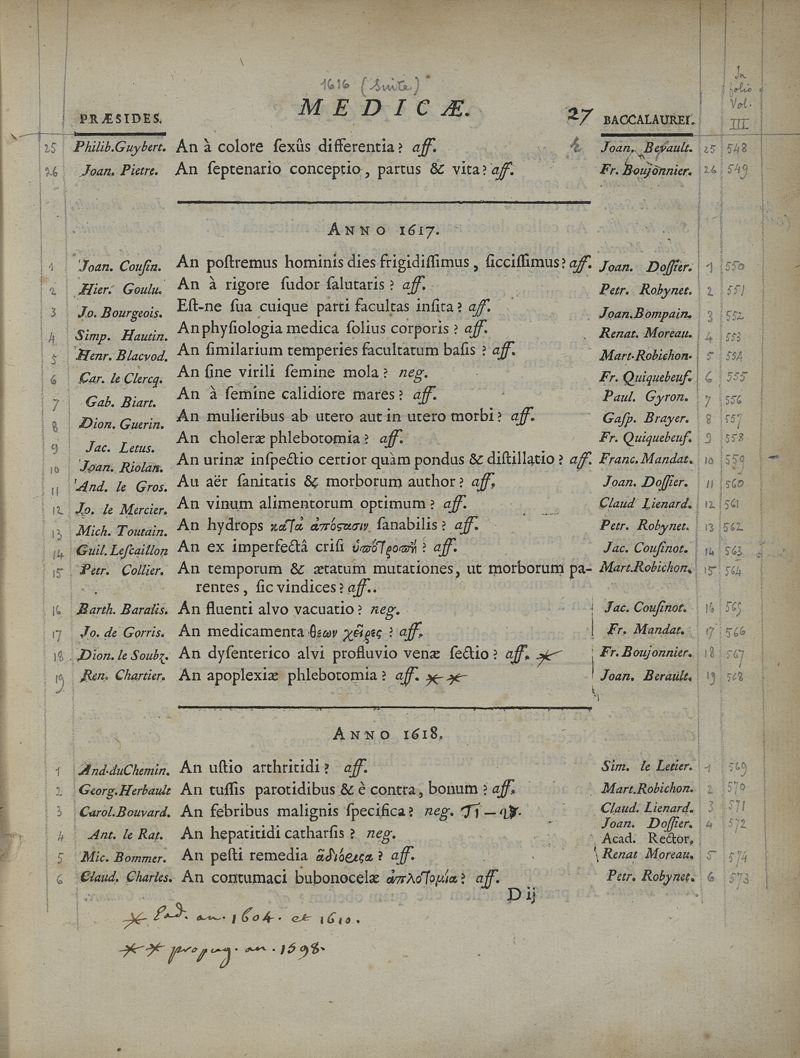 1616 (Suite)
In folio Vol. III
PRÆSIDES. MEDICÆ. 27 BACCALAUREI.
25 Philib.Guybert. An à colore ſexûs differentia? aff. Joan. Berault. 25 548
26 Joan. Pietre. An ſeptenario conceptio, partus & vita? aff. Fr. Boujonnier. 26 549
ANNO 1617.
1 Joan. Couſin. An poſtremus hominis dies frigidiſſimus, ſicciſſimus? aff. Joan. Doſſier. 1 550
2 Hier. Goulu. An à rigore ſudor ſalutaris? aff. Petr. Robynet. 2 551
3 Jo. Bourgeois. Eſt-ne ſua cuique parti facultas inſita? aff. Joan.Bompain. 3 552
4 Simp. Hautin. An phyſiologia medica ſolius corporis? aff. Renat. Moreau. 4 553
5 Henr. Blacvod. An ſimilarium temperies facultatum baſis? aff. Mart-Robichon. 5 554
6 Car. le Clercq. An ſine virili ſemine mola? neg. Fr. Quiquebeuf. 6 555
7 Gab. Biart. An à ſemine calidiore mares? aff. Paul. Gyron. 7 556
8 Dion. Guerin. An mulieribus ab utero aut in utero morbi? aff. Gaſp. Brayer. 8 557
9 Jac. Letus. An choleræ phlebotomia? aff. Fr. Quiquebeuf. 9 558
10 Joan. Riolan. An urinæ inſpectio certior quàm pondus & diſtillatio? aff. Franc.Mandat. 10 559
11 And. le Gros. Au aër ſanitatis & morborum author? aff. Joan. Doſſier. 11 560
12 Jo. le Mercier. An vinum alimentorum optimum? aff. Claud Lienard. 12 561
13 Mich. Toutain. An hydrops κατὰ ἀπόστασιν ſanabilis? aff. Petr. Robynet. 13 562
14 Guil.Leſcaillon An ex imperfectâ criſi ὑποτροπὴ? aff. Jac. Couſinot. 14 563
15 Petr. Collier. An temporum & ætatum mutationes, ut morborum pa- Mart.Robichon. 15 564
rentes, ſic vindices? aff..
16 Barth. Baralis. An fluenti alvo vacuatio? neg. Jac. Couſinot. 16 565
17 Jo. de Gorris. An medicamenta θεων χεῖρες? aff. Fr. Mandat. 17 566
18 Dion. le Soubz. An dyſenterico alvi profluvio venæ ſectio? aff. Fr.Boujonnier. 18 567
19 Ren. Chartier. An apoplexiæ phlebotomia? aff. Joan. Berault. 19 568
ANNO 1618.
1 And-duChemin. An uſtio arthritidi? aff. Sim. le Letier. 1 569
2 Georg.Herbault An tuſſis parotidibus & è contra, bonum? aff. Mart.Robichon. 2 570
3 Carol.Bouvard. An febribus malignis ſpecifica? neg. Claud. Lienard. 3 571
4 Ant. le Rat. An hepatitidi catharſis? neg. Joan. Doſſier. 4 572
Acad. Rector.
5 Mic. Bommer. An peſti remedia ἀδιόριςα? aff. Renat Moreau. 5 574
6 Claud. Charles. An contumaci bubonocelæ ἀπλοτομία? aff. Petr. Robynet. 6 573
D ij
an. 1604. et 1610.
propug. an. 1598.